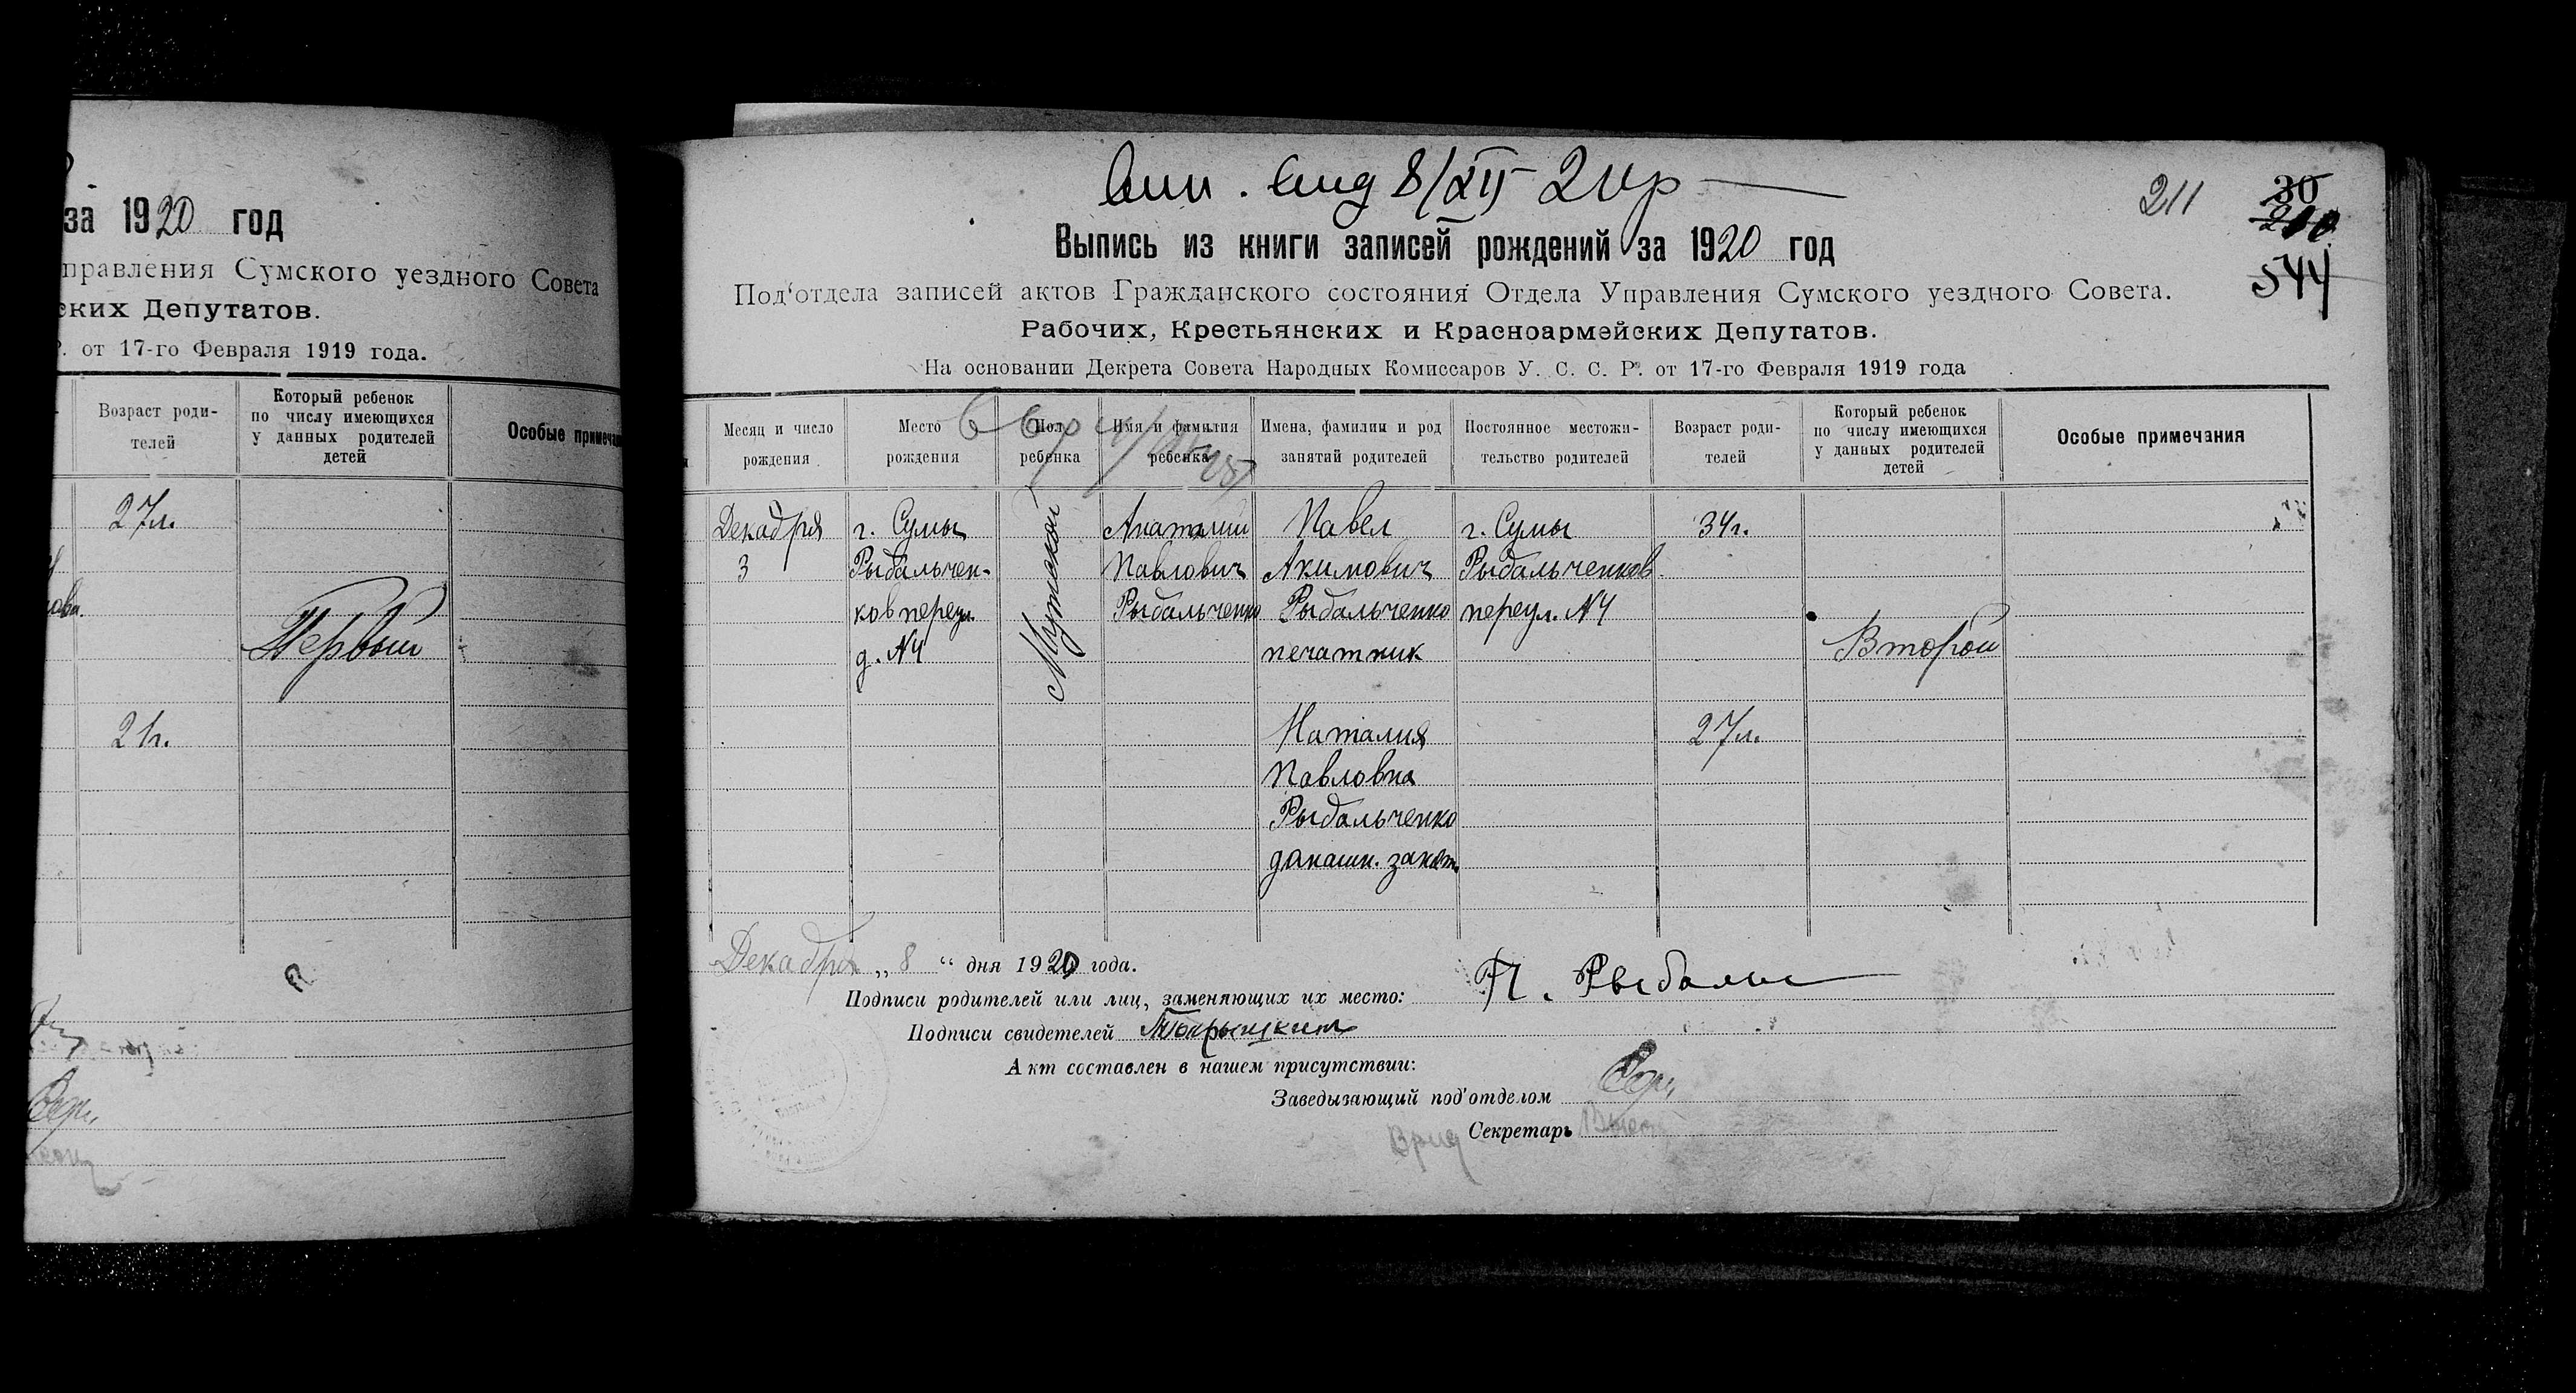 за 1920 год
правления Сумского уездного Совета
ских Депутатов.
Р. от 17-го Февраля 1919 года.
Возраст роди-
телей
Который ребенок
по числу имеющихся
у данных родителей
детей
Особые примеча
27л.
Первый
21г.
8/XII
211
30
544
Выпись из книги записей рождений за 1920 год
Под'отдела записей актов Гражданского состояния Отдела Управления Сумского уездного Совета.
Рабочих, Крестьянских и Красноармейских Депутатов.
На основании Декрета Совета Народных Комиссаров У. С. С. Р. от 17-го Февраля 1919 года
Месяц и число
рождения
Место
рождения
Пол
ребенка
Имя и фамилия
ребенка
Имена, фамилии и род
занятий родителей
Постоянное местожи-
тельство родителей
Возраст роди-
телей
Который ребенок
по числу имеющихся
у данных родителей
детей
Особые примечания
Декабря
3
г. Сумы
Рыбальчен-
ков переул.
д. N4
Мужской
Анатолий
Павлович
Рыбальченко
Павел
Акимович
Рыбальченко
печатник
Наталия
Павловна
Рыбальченко
домашн. занят.
г. Сумы
Рыбальченков
переул. N4
34г.
27л.
Второй
Декабря „ 8 “ дня 1920 года.
Подписи родителей или лиц, заменяющих их место: П. Рыбальч
Подписи свидетелей
Акт составлен в нашем присутствии:
Заведывающий под'отделом
Врид Секретарь